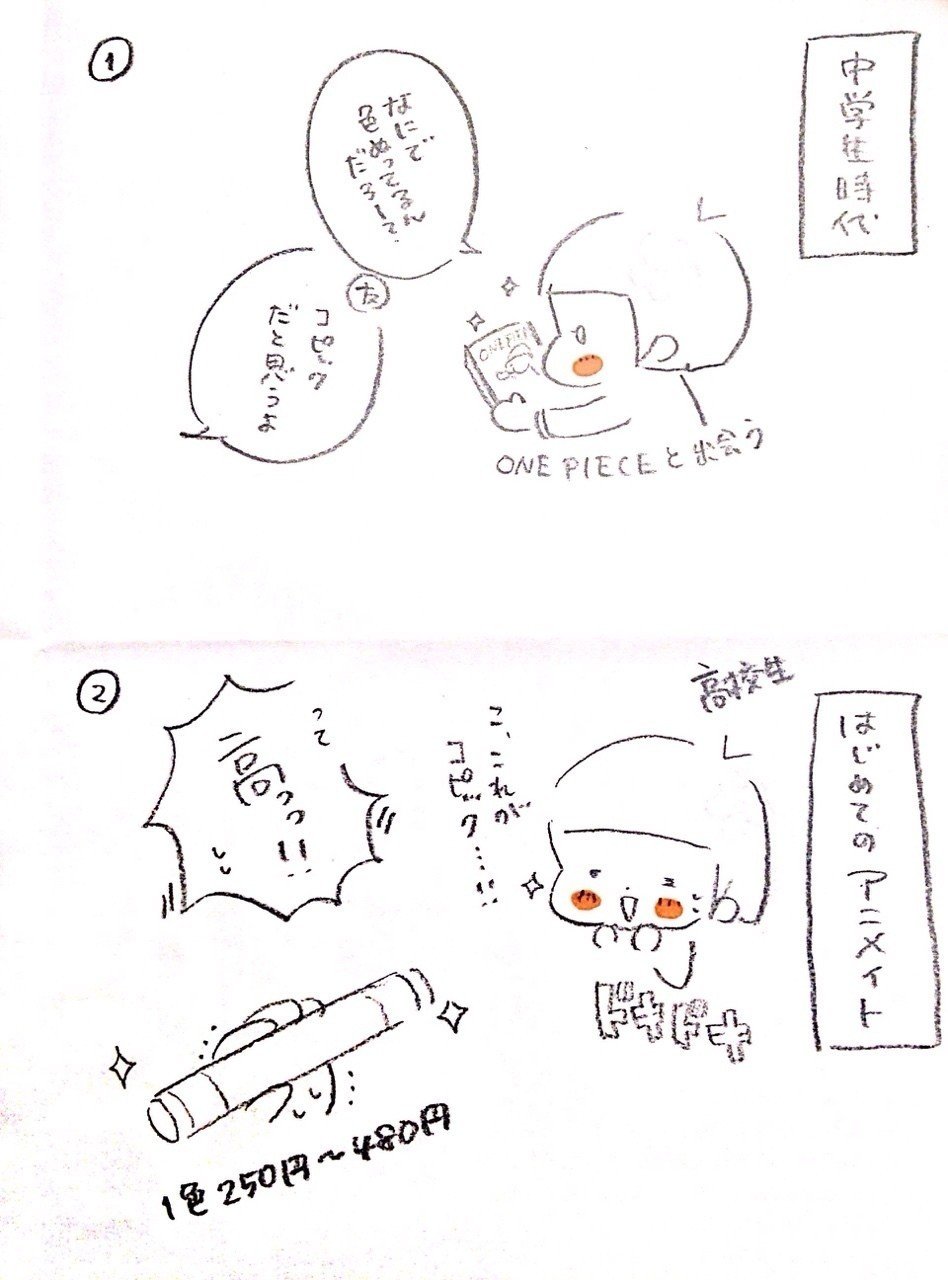 ①
中学生時代
なにで
色ぬってるん
だろして
友
コピック
だと思うよ
ONE PIECE
ONE PIECEと出会う
②
はじめてのアニメイト
高校生
ドキドキ
こ、これが
コピック…!!
って
高っっ!!
1色250円〜480円